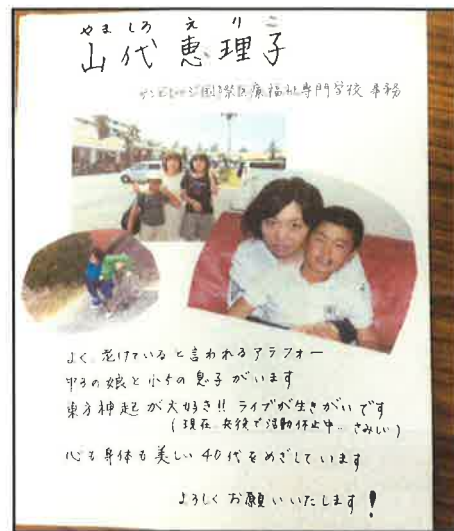 やましろ えりこ
山代恵理子
サンビレッジ国際医療福祉専門学校 事務
よく 老けていると言われるアラフォー
中3の娘と小5の息子がいます
東方神起が大好き!! ライブが生きがいです
(現在 兵役で活動休止中.. さみしい)
心も身体も美しい40代をめざしています
よろしくお願いいたします!